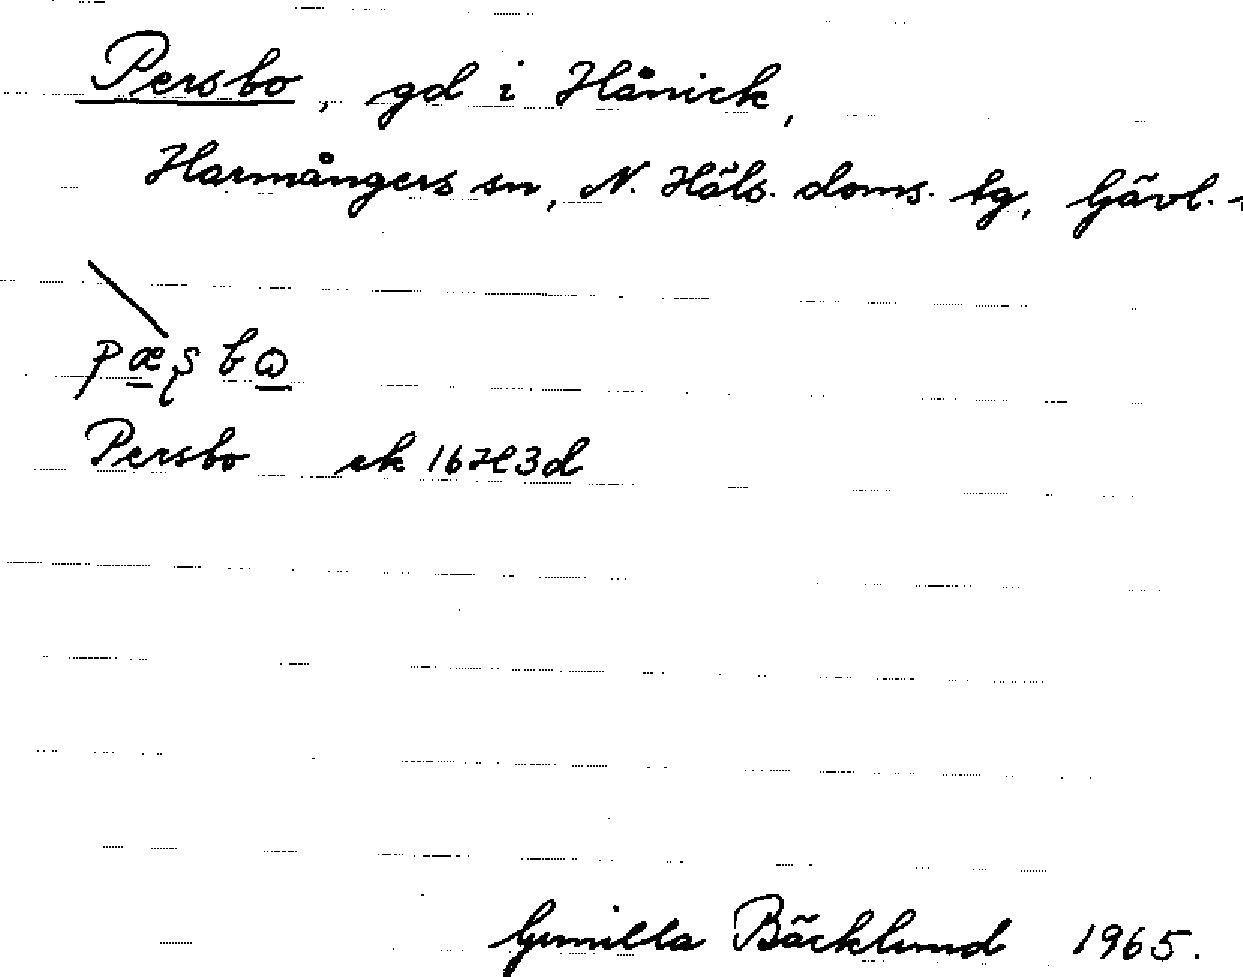 Persbo, gd i Hånick,
Harmångers sn, N. Häls. doms. tg, Gävl.
pæʂbɷ
Persbo ek 16H3d
Gunilla Bäcklund 1965.